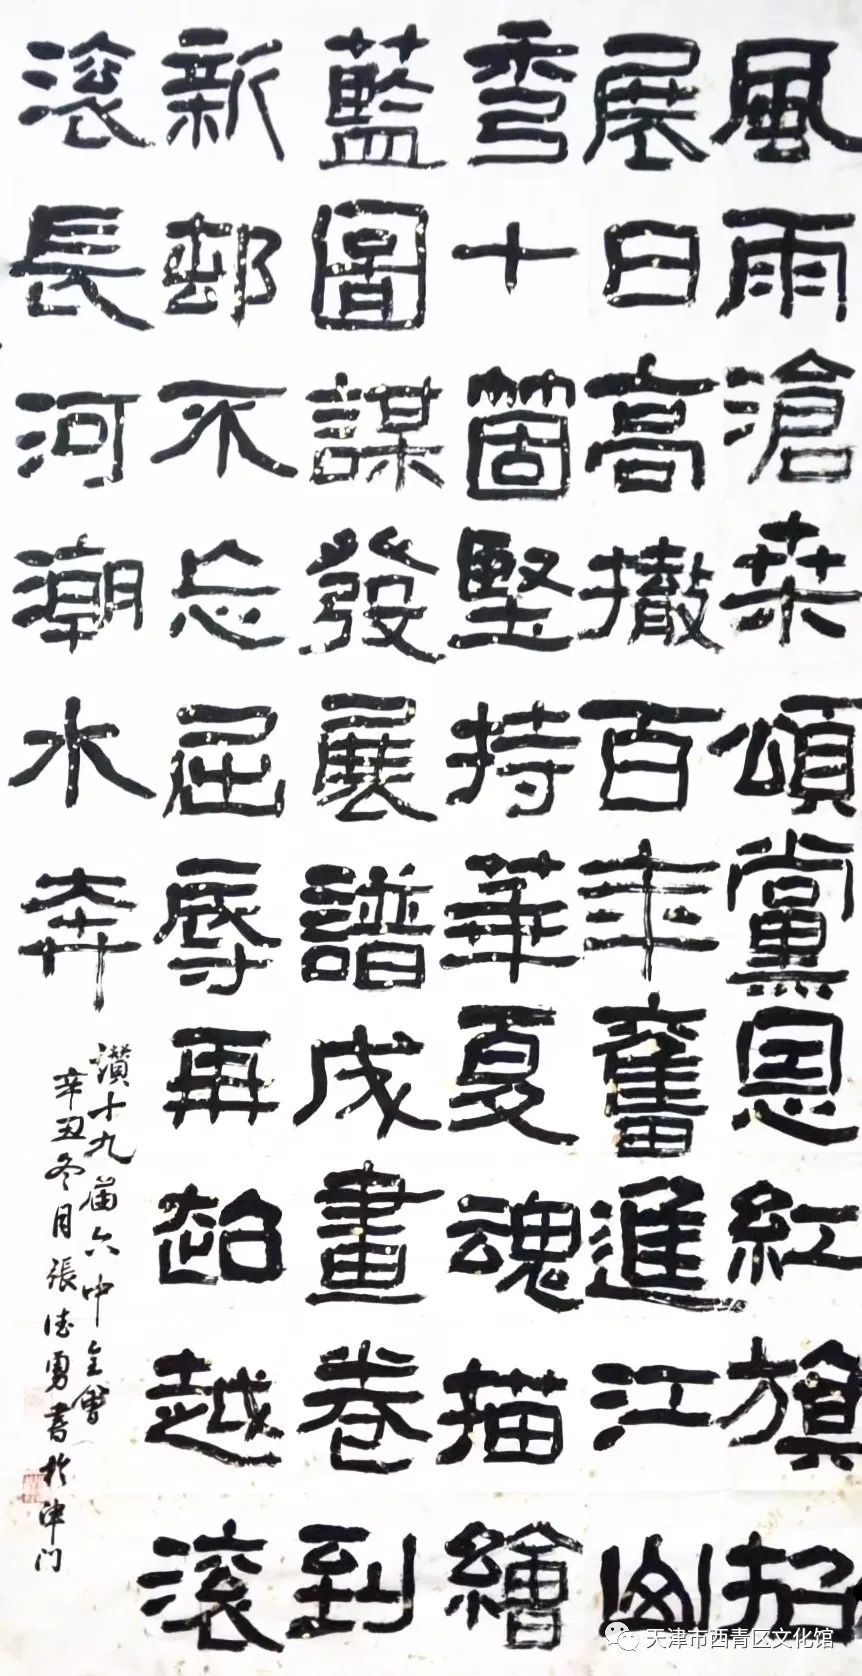 風雨滄桒頌黨恩紅旗招
展日高撤百年奮進江山
秀十箇堅持華夏魂描繪
藍圖謀發展譜成畫卷到
新邨不忘屈辱再超越滾
滾長河潮水奔
讚十九届六中全會
辛丑冬月張德勇書於津门
天津市西青区文化馆